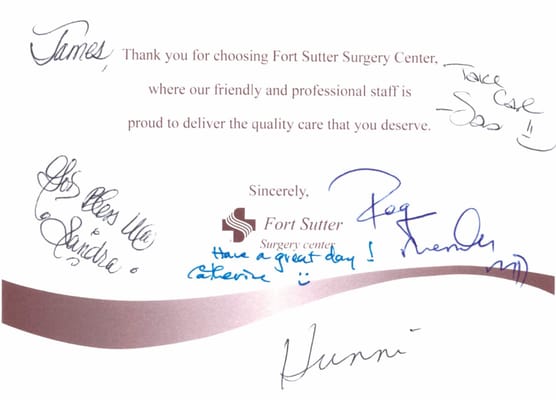 James,
Thank you for choosing Fort Sutter Surgery Center,
where our friendly and professional staff is
proud to deliver the quality care that you deserve.
Take
Care
God Bless
Sandra
Sincerely,
Fort Sutter
Surgery center
Have a great day!
Catherine
MD
Hunni